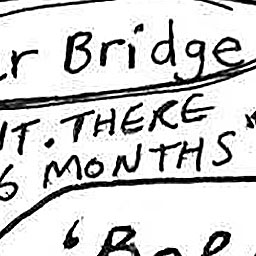 r Bridge
IT. THERE
6 MONTHS